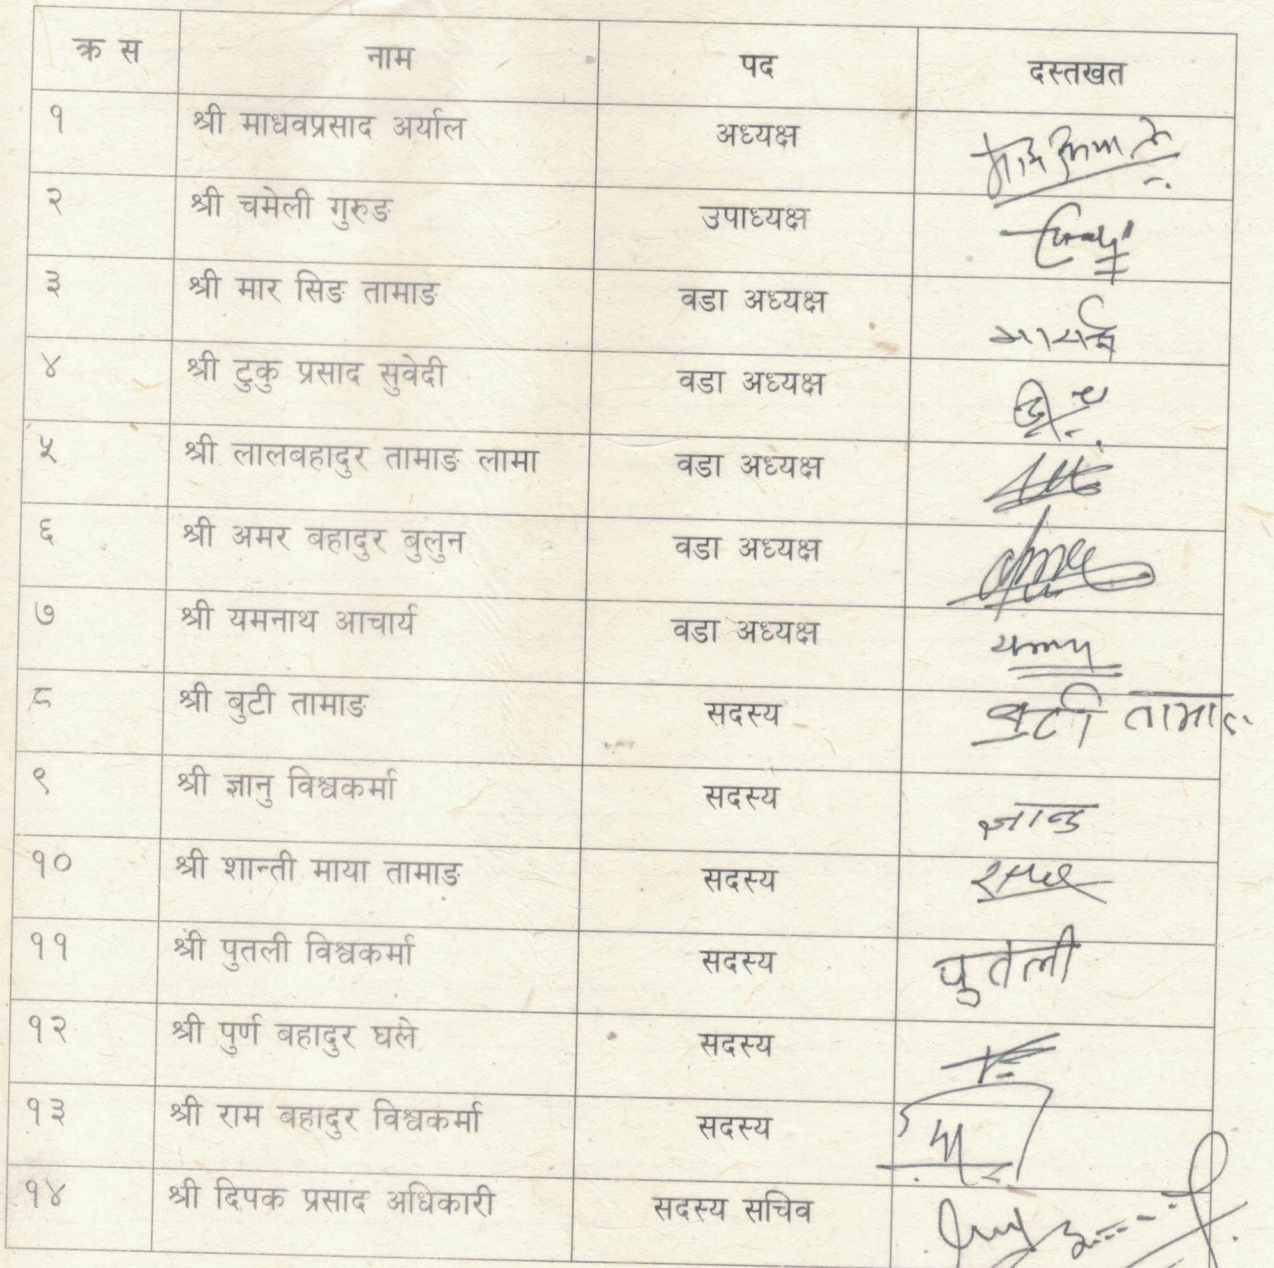 क्र स नाम पद दस्तखत
१ श्री माधवप्रसाद अर्याल अध्यक्ष
२ श्री चमेली गुरुङ उपाध्यक्ष
३ श्री मार सिङ तामाङ वडा अध्यक्ष
४ श्री टुकु प्रसाद सुवेदी वडा अध्यक्ष
५ श्री लालबहादुर तामाङ लामा वडा अध्यक्ष
६ श्री अमर बहादुर बुलुन वडा अध्यक्ष
७ श्री यमनाथ आचार्य वडा अध्यक्ष
८ श्री बुटी तामाङ सदस्य बुटी तामाङ
९ श्री ज्ञानु विश्वकर्मा सदस्य ज्ञानु
१० श्री शान्ती माया तामाङ सदस्य
११ श्री पुतली विश्वकर्मा सदस्य पुतली
१२ श्री पुर्ण बहादुर घले सदस्य
१३ श्री राम बहादुर विश्वकर्मा सदस्य
१४ श्री दिपक प्रसाद अधिकारी सदस्य सचिव